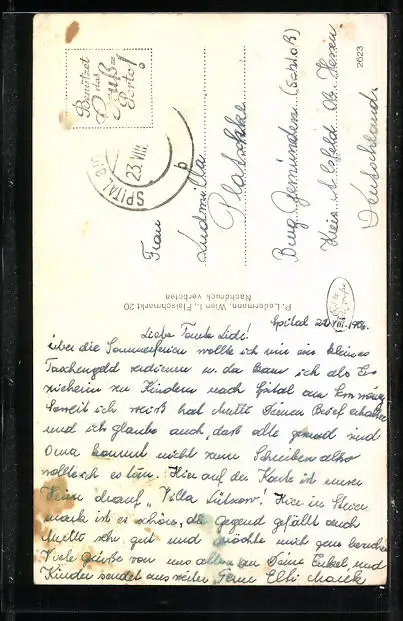 Benützet
das
Gruß=
Porto!
SPITAL a.P.
23.VIII.
b
Frau
Ludmilla
Platschke
Burg Gemünden (Schloß)
Kreis Alsfeld Ob. Hessen
Deutschland
2623
P. Ledermann, Wien I., Fleischmarkt 20
Nachdruck verboten
Spital 22.VIII.
Liebe Tante Lidi!
über die Sommerferien wollte ich mir ein kleines
Taschengeld verdienen u. da kam ich als Er-
zieherin zu Kindern nach Spital am
Soweit ich weiß hat Mutti Deinen Brief erhalten
und ich glaube auch, daß alle gesund sind
Oma kommt nicht zum Schreiben also
wollte ich es tun. Hier auf der Karte ist unser
Heim drauf „Villa Lützow". Hier in Steier-
mark ist es schön, die Gegend gefällt auch
Mutti sehr gut und möchte mich gern besuchen
Viele Grüße von uns allen an Deine Enkel und
Kinder sendet aus weiter Ferne Elli